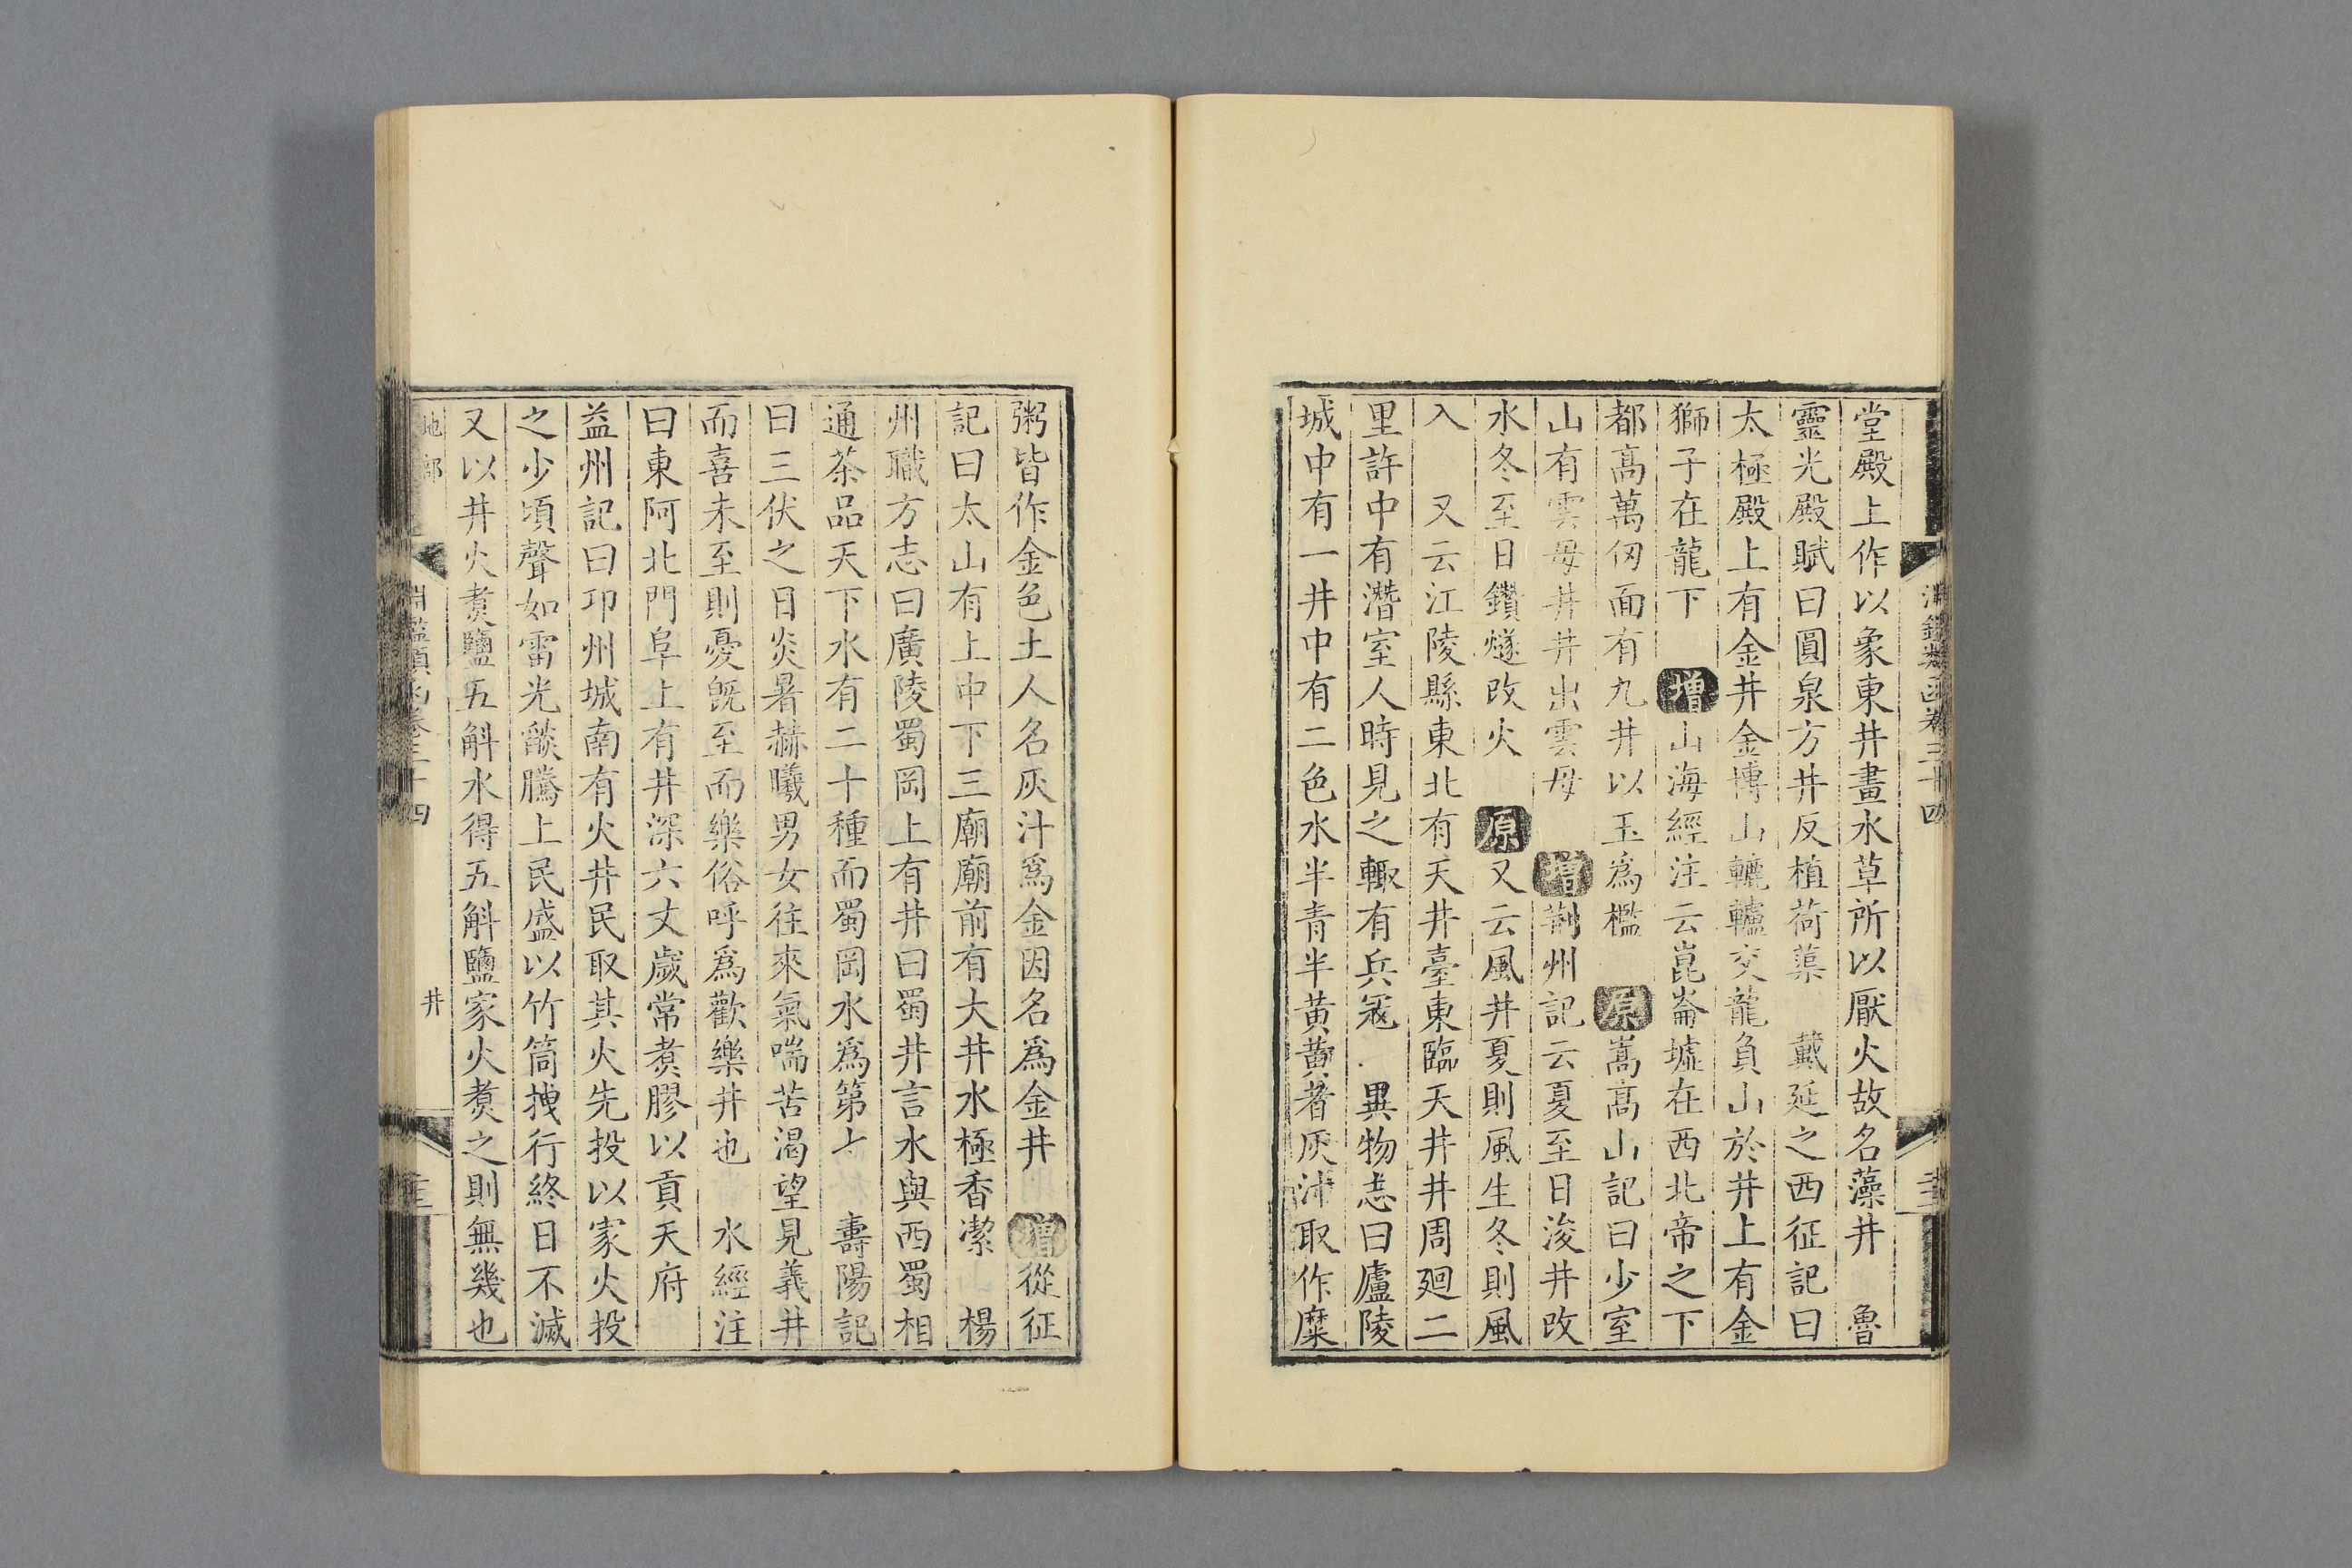 堂殿上作以象東井畫水草所以厭火故名藻井 魯
靈光殿賦曰圓泉方井反植荷蕖 戴延之西征記曰
太極殿上有金井金博山轆轤交龍負山於井上有金
獅子在龍下 增山海經注云崑崙墟在西北帝之下
都高萬仞面有九井以玉爲檻 原嵩高山記曰少室
山有雲母井井出雲母 增荆州記云夏至日浚井改
水冬至日鑽燧改火 原又云風井夏則風生冬則風
入 又云江陵縣東北有天井臺東臨天井井周廻二
里許中有潛室人時見之輙有兵寇 異物志曰廬陵
城中有一井中有二色水半青半黄黄者灰沸取作糜
粥皆作金色土人名灰汁爲金因名爲金井 增從征
記曰太山有上中下三廟廟前有大井水極香潔 楊
州職方志曰廣陵蜀岡上有井曰蜀井言水與西蜀相
通茶品天下水有二十種而蜀岡水爲第七 壽陽記
曰三伏之日炎暑赫曦男女往來氣喘苦渴望見義井
而喜未至則憂旣至而樂俗呼爲歡樂井也 水經注
曰東阿北門阜上有井深六丈歲常煑膠以貢天府
益州記曰邛州城南有火井民取其火先投以家火投
之少頃聲如雷光燄騰上民盛以竹筒拽行終日不滅
又以井火煑鹽五斛水得五斛鹽家火煑之則無幾也
地部
淵鑑類函卷三十四
井